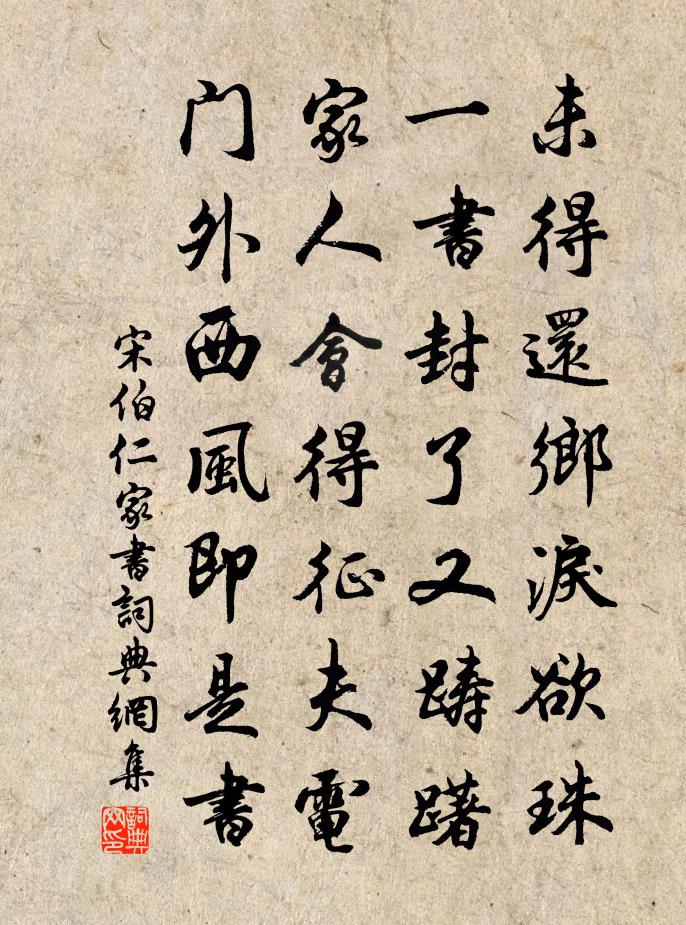 未得還鄉淚欲珠
一書封了又躊躇
家人會得征夫電
门外西風即是書
宋伯仁家書詞典網集
詞典网印